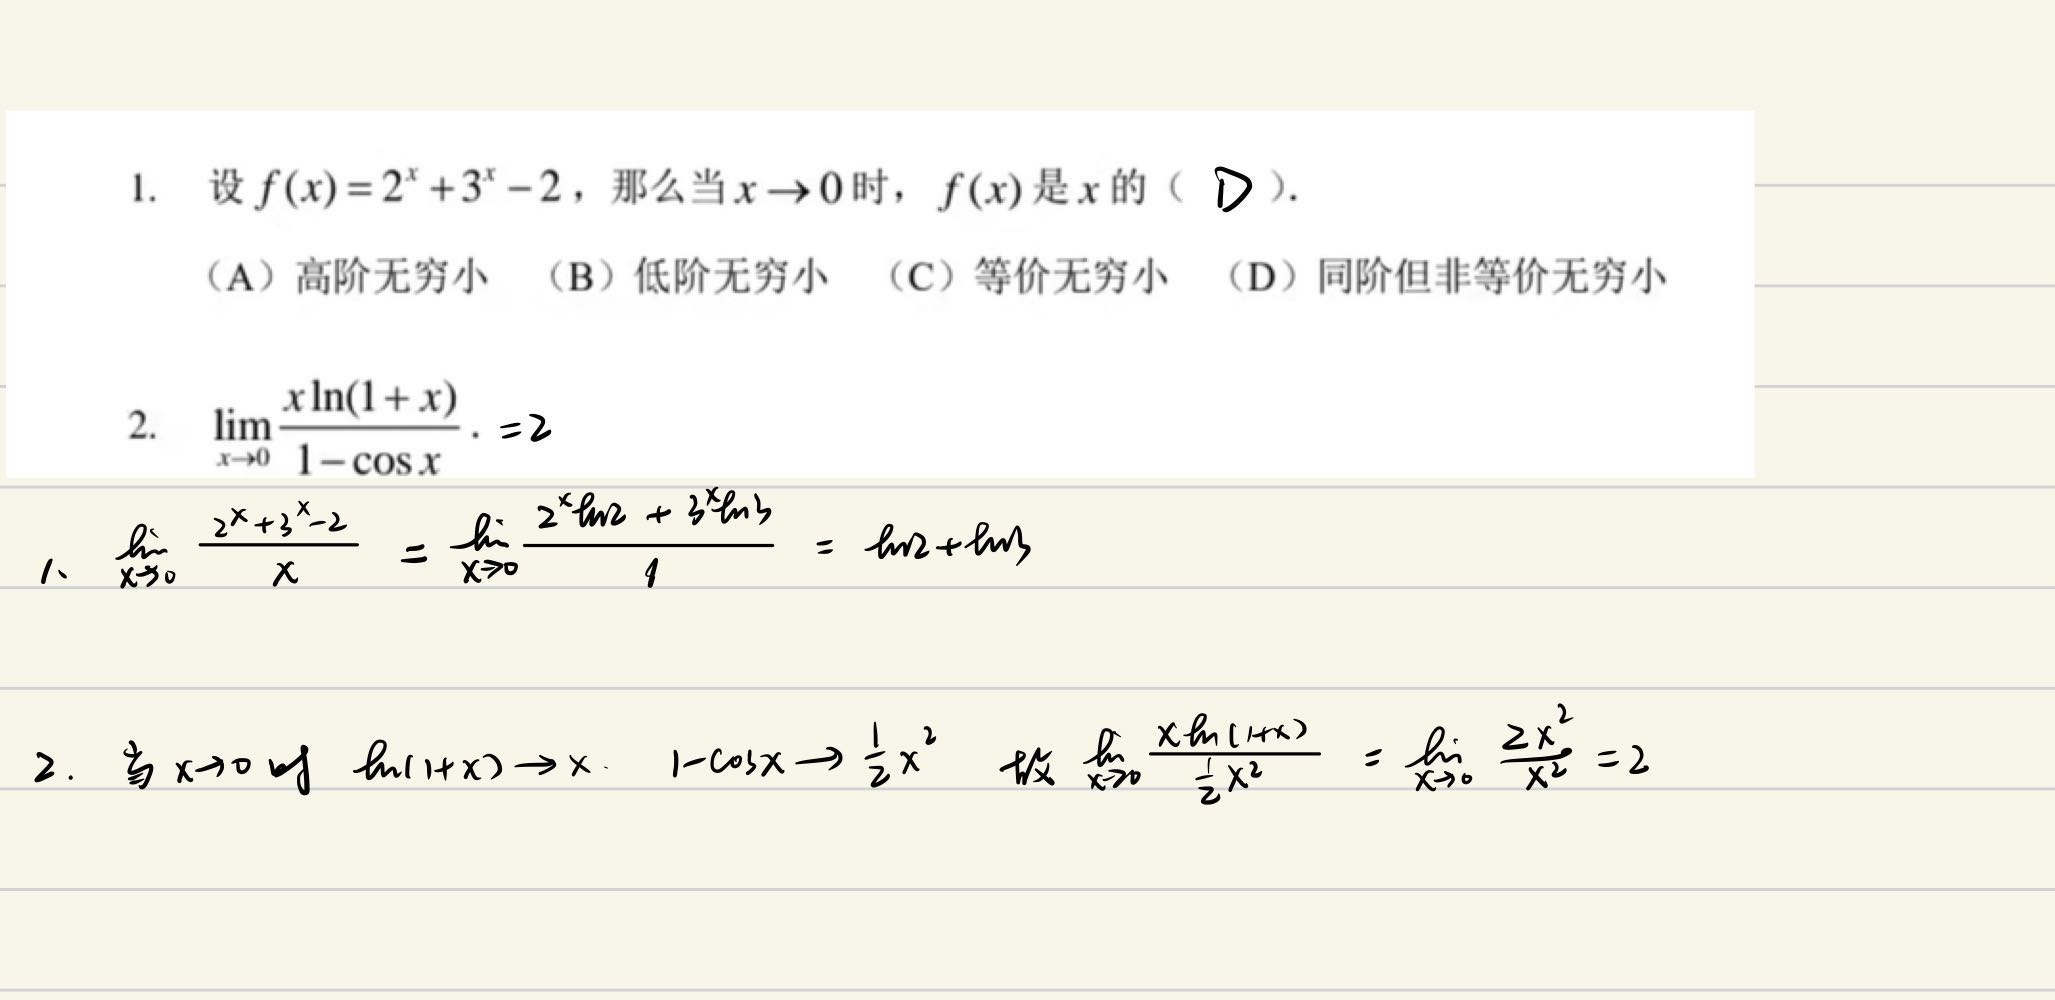 1. 设 f(x) = 2^x + 3^x − 2，那么当 x → 0 时，f(x) 是 x 的（ D ）.
（A）高阶无穷小 （B）低阶无穷小 （C）等价无穷小 （D）同阶但非等价无穷小
2. lim_{x→0} \frac{x ln(1 + x)}{1 − cos x} . = 2
1、 lim_{x→0} \frac{2^x + 3^x − 2}{x} = lim_{x→0} \frac{2^x ln2 + 3^x ln3}{1} = ln2 + ln3
2. 当 x→0 时 ln(1+x) → x. 1−cosx → \frac{1}{2} x^2 故 lim_{x→0} \frac{x ln(1+x)}{\frac{1}{2} x^2} = lim_{x→0} \frac{2x^2}{x^2} = 2